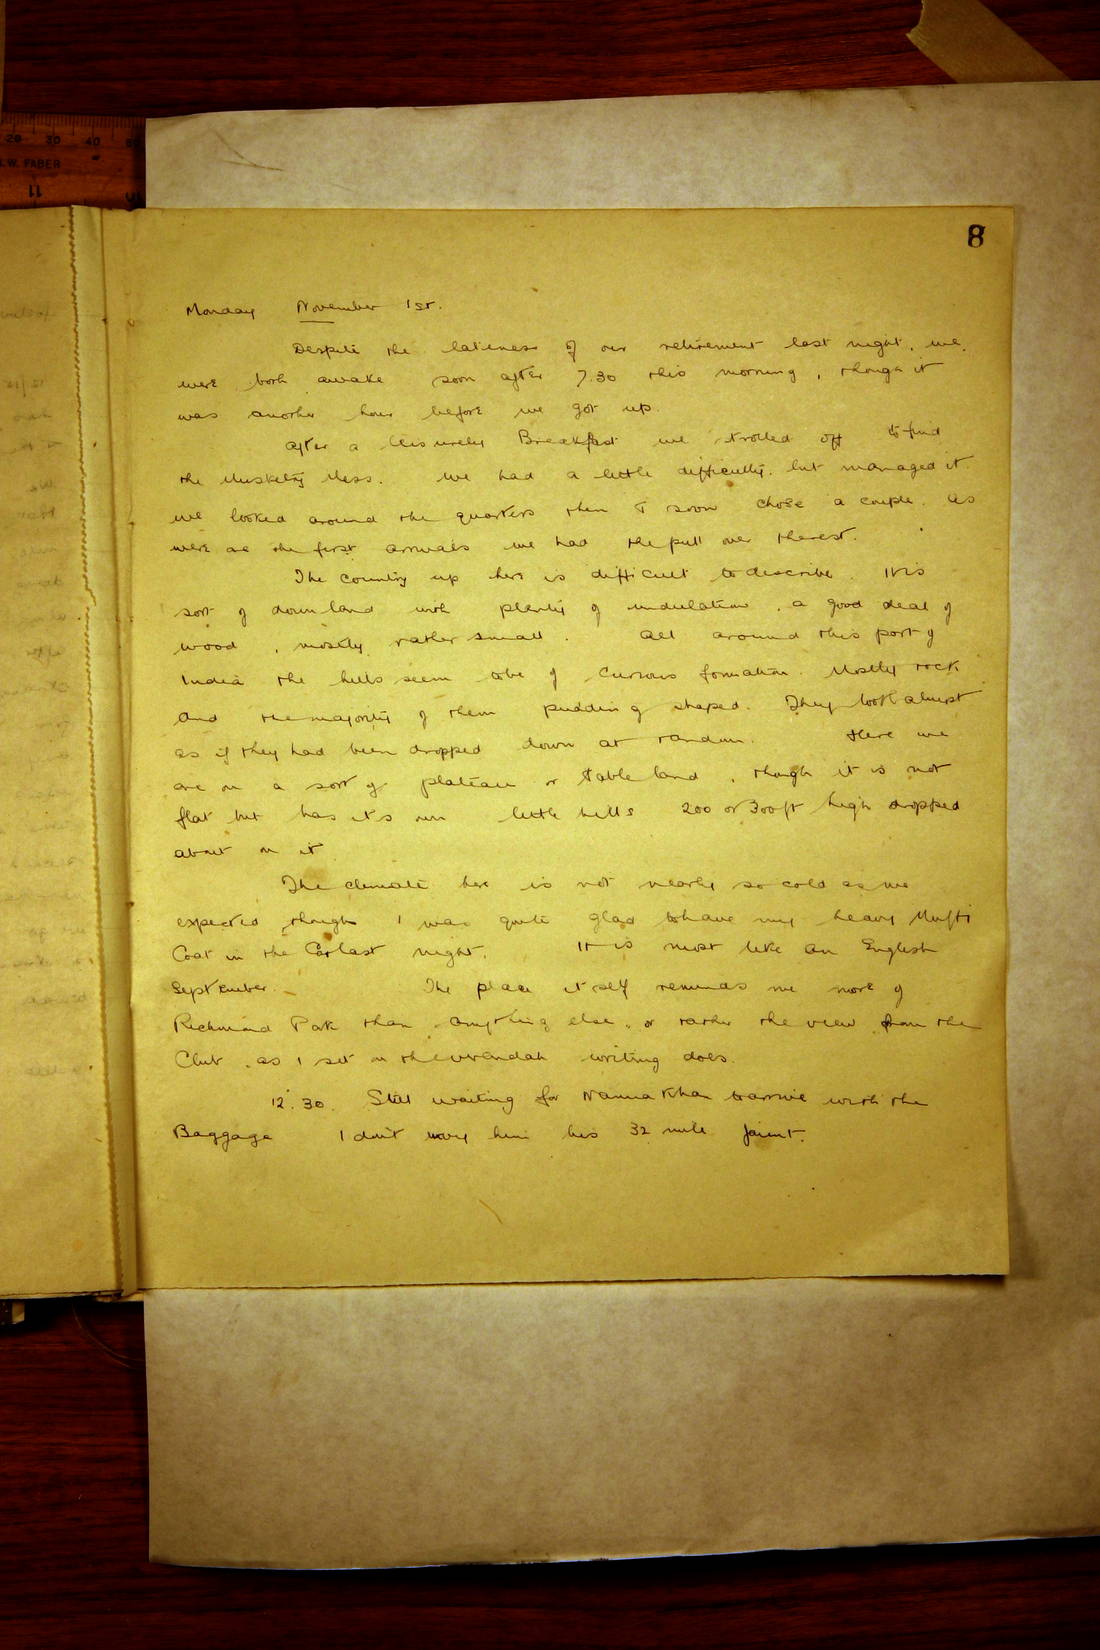 20 30 40
W. FABER
11
8
Monday November 1st.
Despite the lateness of our retirement last night, we
were both awake soon after 7.30 this morning, though it
was another hour before we got up.
After a leisurely Breakfast we strolled off to find
the Musketry Mess. We had a little difficulty, but managed it.
We looked around the quarters then & soon chose a couple. As
were as the first arrivals we had the pull over the rest.
The country up here is difficult to describe. It is
sort of downland with plenty of undulation, a good deal of
wood, mostly rather small. All around this part of
India the hills seem to be of curious formation. Mostly rock
and the majority of them pudding shaped. They look almost
as if they had been dropped down at random. Here we
are on a sort of plateau or table land, though it is not
flat but has it's own little hills 200 or 300 ft high dropped
about on it
The climate here is not nearly so cold as we
expected though I was quite glad to have my heavy Mufti
Coat in the Car last night. It is most like an English
September. The place itself reminds me more of
Richmond Park than anything else, or rather the view from the
Club, as I sit on the verandah writing does.
12.30. Still waiting for Nanna Khan to arrive with the
Baggage I don't envy him his 32 mile jaunt.